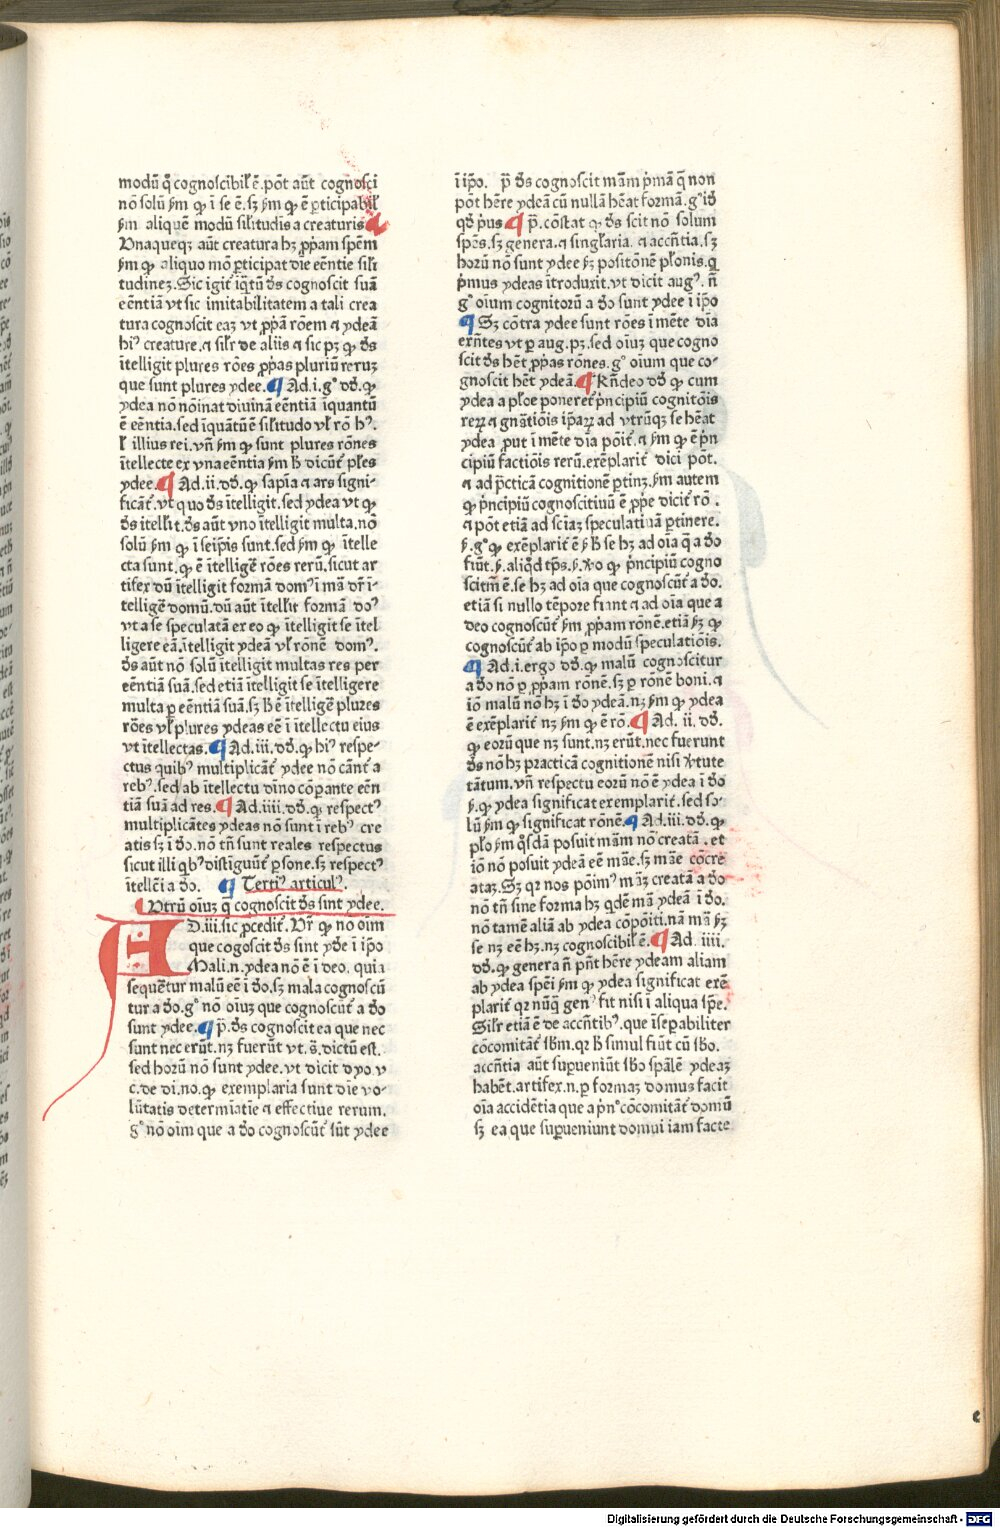 modū q̄ cognoscibił ē. pōt aūt cognosci
nō solū ẜm ꝙ ī se ē. sꝫ ẜm ꝙ ē ꝑticipabił
ẜm aliquē modū sił̄itudis a creaturis ¶
Unaqueqꝫ aūt creatura hꝫ ꝓpam spēm
ẜm ꝙ aliquo mō ꝑticipat dīe eēntie sił̄i
tudinez. Sic igit̄ iqͣtū ds̄ cognoscit suā
eēntiā vt sic imitabilitatem a tali crea
tura cognoscit eaꝫ vt ꝓpā rōem ⁊ ydeā
hiꝰ creature. ⁊ sił̄r de aliis ⁊ sic pꝫ ꝙ ds̄
ītelligit plures rōes ꝓpas pluriū reruꝫ
que sunt plures ydee. ¶ Ad. i. gͦ dō. ꝙ
ydea nō nōinat diuinā eēntiā iquantū
ē eēntia. sed iquātū ē sił̄itudo vł rō hꝰ.
ł illius rei. vn̄ ẜm ꝙ sunt plures rōnes
ītellecte ex vna eēntia ẜm ħ dicūt̄ pl̄es
ydee. ¶ Ad. ii. dō. ꝙ sapīa ⁊ ars signi-
ficāt̄. vt quo ds̄ ītelligit. sed ydea vt ꝙ
ds̄ itellit. ds̄ aūt vno ītelligit multa. nō
solū ẜm ꝙ ī seip̄is sunt. sed ẜm ꝙ ītelle
cta sunt. ꝙ ē ītelligē rōes rerū. sicut ar
tifex dū ītelligit formā domꝰ ī mā dr̄ ī-
telligē domū. dū aūt ītellit formā doꝰ
vt a se speculatā ex eo ꝙ ītelligit se ītel
ligere eā. ītelligit ydeā vł rōnē domꝰ.
ds̄ aūt nō solū ītelligit multas res per
eēntiā suā. sed etiā ītelligit se ītelligere
multa ꝑ eēntiā suā. sꝫ ħ ē ītelligē plures
rōes vł plures ydeas eē ī itellectu eius
vt ītellectas. ¶ Ad. iii. dō. ꝙ hiꝰ respe-
ctus quibꝰ multiplicāt̄ ydee nō cāt̄ a
rebꝰ. sed ab itellectu diuino cōꝑante eēn
tiā suā ad res. ¶ Ad. iiii. dō. ꝙ respectꝰ
multiplicātes ydeas nō sunt ī rebꝰ cre
atis sꝫ ī do. nō tn̄ sunt reales respectus
sicut illi qͥbꝰ distīguūt̄ ꝑsone. sꝫ respectꝰ
ītellēi a do. ¶ Tertiꝰ articulꝰ.
¶ Utrū oīuꝫ q̄ cognoscit ds̄ sint ydee.
AD. iii. sic ꝓcedit̄. Ur̄ ꝙ nō oīm
que cogoscit ds̄ sint yde ī ip̄o
Mali. n. ydea nō ē ī deo. quia
sequēretur malū eē ī do. sꝫ mala cognoscū
tur a do. gͦ nō oīuꝫ que cognoscūt̄ a do
sunt ydee. ¶ p̄. ds̄ cognoscit ea que nec
sunt nec erūt. nꝫ fuerūt vt. s̄. dictū est.
sed horū nō sunt ydee. vt dicit dyo. v
c. de di. no. ꝙ exemplaria sunt dīe vo-
lūtatis determīatīe ⁊ effectiue rerum.
gͦ nō oīm que a do cognoscūt̄ sūt ydee
ī ip̄o. p̄ ds̄ cognoscit mām pͥmā q̄ non
pōt hēre ydeā cū nullā hēat formā. gͦ id
qd̄ pͥus ¶ p̄. cōstat ꝙ ds̄ scit nō solum
spēs. sꝫ genera. ⁊ singlaria. ⁊ accn̄tia. sꝫ
horū nō sunt ydee ẜꝫ positōnē platonis. q
pͥmus ydeas ītroduxit. vt dicit augꝰ. n̄
gͦ oīum cognitorū a do sunt ydee ī ip̄o
¶ Sꝫ cōtra ydee sunt rōes ī mēte dīa
exn̄tes vt ꝑ aug. pꝫ. sed oīuꝫ que cogno
scit ds̄ hēt ꝓpas rōnes. gͦ oīum que co-
gnoscit hēt ydeā. ¶ Rn̄deo dō ꝙ cum
ydea a platoe poneret̄ pͥncipiū cognitōis
reꝝ ⁊ gn̄atiōis ip̄aꝝ ad vtrūqꝫ se hēat
ydea ꝓut ī mēte dīa pōit̄. ⁊ ẜm ꝙ ē pͥn
cipiū factiōis rerū. exēplarit̄ dici pōt.
⁊ ad pͣcticā cognitionē ꝑtinꝫ. ẜm autem
ꝙ pͥncipiū cognoscitiuū ē ꝓpe dicit̄ rō.
⁊ pōt etiā ad sciaꝫ speculatiuā ꝑtinere.
ẜ. gͦ ꝙ exēplarit̄ ē ẜ ħ se hꝫ ad oīa q̄ a do
fiūt. ẜ. aliqd̄ tp̄s. ẜ. vͦ ꝙ pͥncipiū cogno
scitm̄ ē. se hꝫ ad oīa que cognoscūt̄ a do.
etiā si nullo tēpore fiant ⁊ ad oīa que a
deo cognoscūt̄ ẜm ꝓpam rōnē. etiā ẜꝫ ꝙ
cognoscūt̄ ab ip̄o ꝑ modū speculatiōis.
¶ Ad. i. ergo dō. ꝙ malū cognoscitur
a do nō ꝑ ꝓpam rōnē. sꝫ ꝑ rōnē boni. ⁊
iō malū nō hꝫ ī do ydeā. nꝫ ẜm ꝙ ydea
ē exēplarit̄ nꝫ ẜm ꝙ ē rō. ¶ Ad. ii. dō.
ꝙ eorū que nꝫ sunt. nꝫ erūt. nec fuerunt
ds̄ nō hꝫ practicā cognitionē nisi vͥtute
tātum. vn̄ respectu eorū nō ē ydea ī do
ẜ. ꝙ ydea significat exemplarit̄. sed so-
lū ẜm ꝙ significat rōnē. ¶ Ad. iii. dō. ꝙ
plato ẜm qͦsdā posuit mām nō creatā. et
iō nō posuit ydeā eē māe. sꝫ māe cōcre
ataꝫ. Sꝫ qꝛ nos pōimꝰ māꝫ creatā a do
nō tn̄ sine forma hꝫ qͥdē mā ydeā ī do.
nō tamē aliā ab ydea cōpōiti. nā mā ẜꝫ
se nꝫ eē hꝫ. nꝫ cognoscibił ē. ¶ Ad. iiii.
dō. ꝙ genera n̄ pn̄t hēre ydeam aliam
ab ydea spēi ẜm ꝙ ydea significat exē
plarit̄ qꝛ nūqͣ genꝰ fit nisi ī aliqua spē.
Sił̄r etiā ē de accn̄tibꝰ. que īseꝑabiliter
cōcomitāt̄ sbm̄. qꝛ ħ simul fiūt cū sbo.
accn̄tia aūt suꝑueniūt sbo spālē ydeaꝫ
habēt. artifex. n. ꝑ formaꝫ domus facit
oīa accidētia que a pͥnͦ cōcomitāt̄ domū
sꝫ ea que suꝑueniunt domui iam facte
e
Digitalisierung gefördert durch die Deutsche Forschungsgemeinschaft - DFG